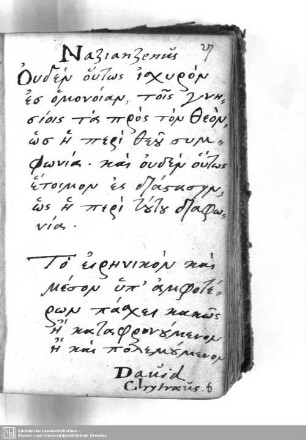 Nazianzenus
27
Οὐδὲν οὕτως ἰσχυρὸν
ἐς ὁμόνοιαν, τοῖς γνη-
σίοις τὰ πρὸς τὸν Θεὸν,
ὡς ἡ περὶ θεοῦ συμ-
φωνία. καὶ οὐδὲν οὕτως
ἕτοιμον ἐς διάστασιν,
ὡς ἡ περὶ τούτου διαφω-
νία.
Τὸ εἰρηνικὸν καὶ
μέσον ὑπ' ἀμφοτέ-
ρων πάσχει κακῶς
ἢ καταφρονούμενον
ἢ καὶ πολεμούμενον
David
Chytraeus. D